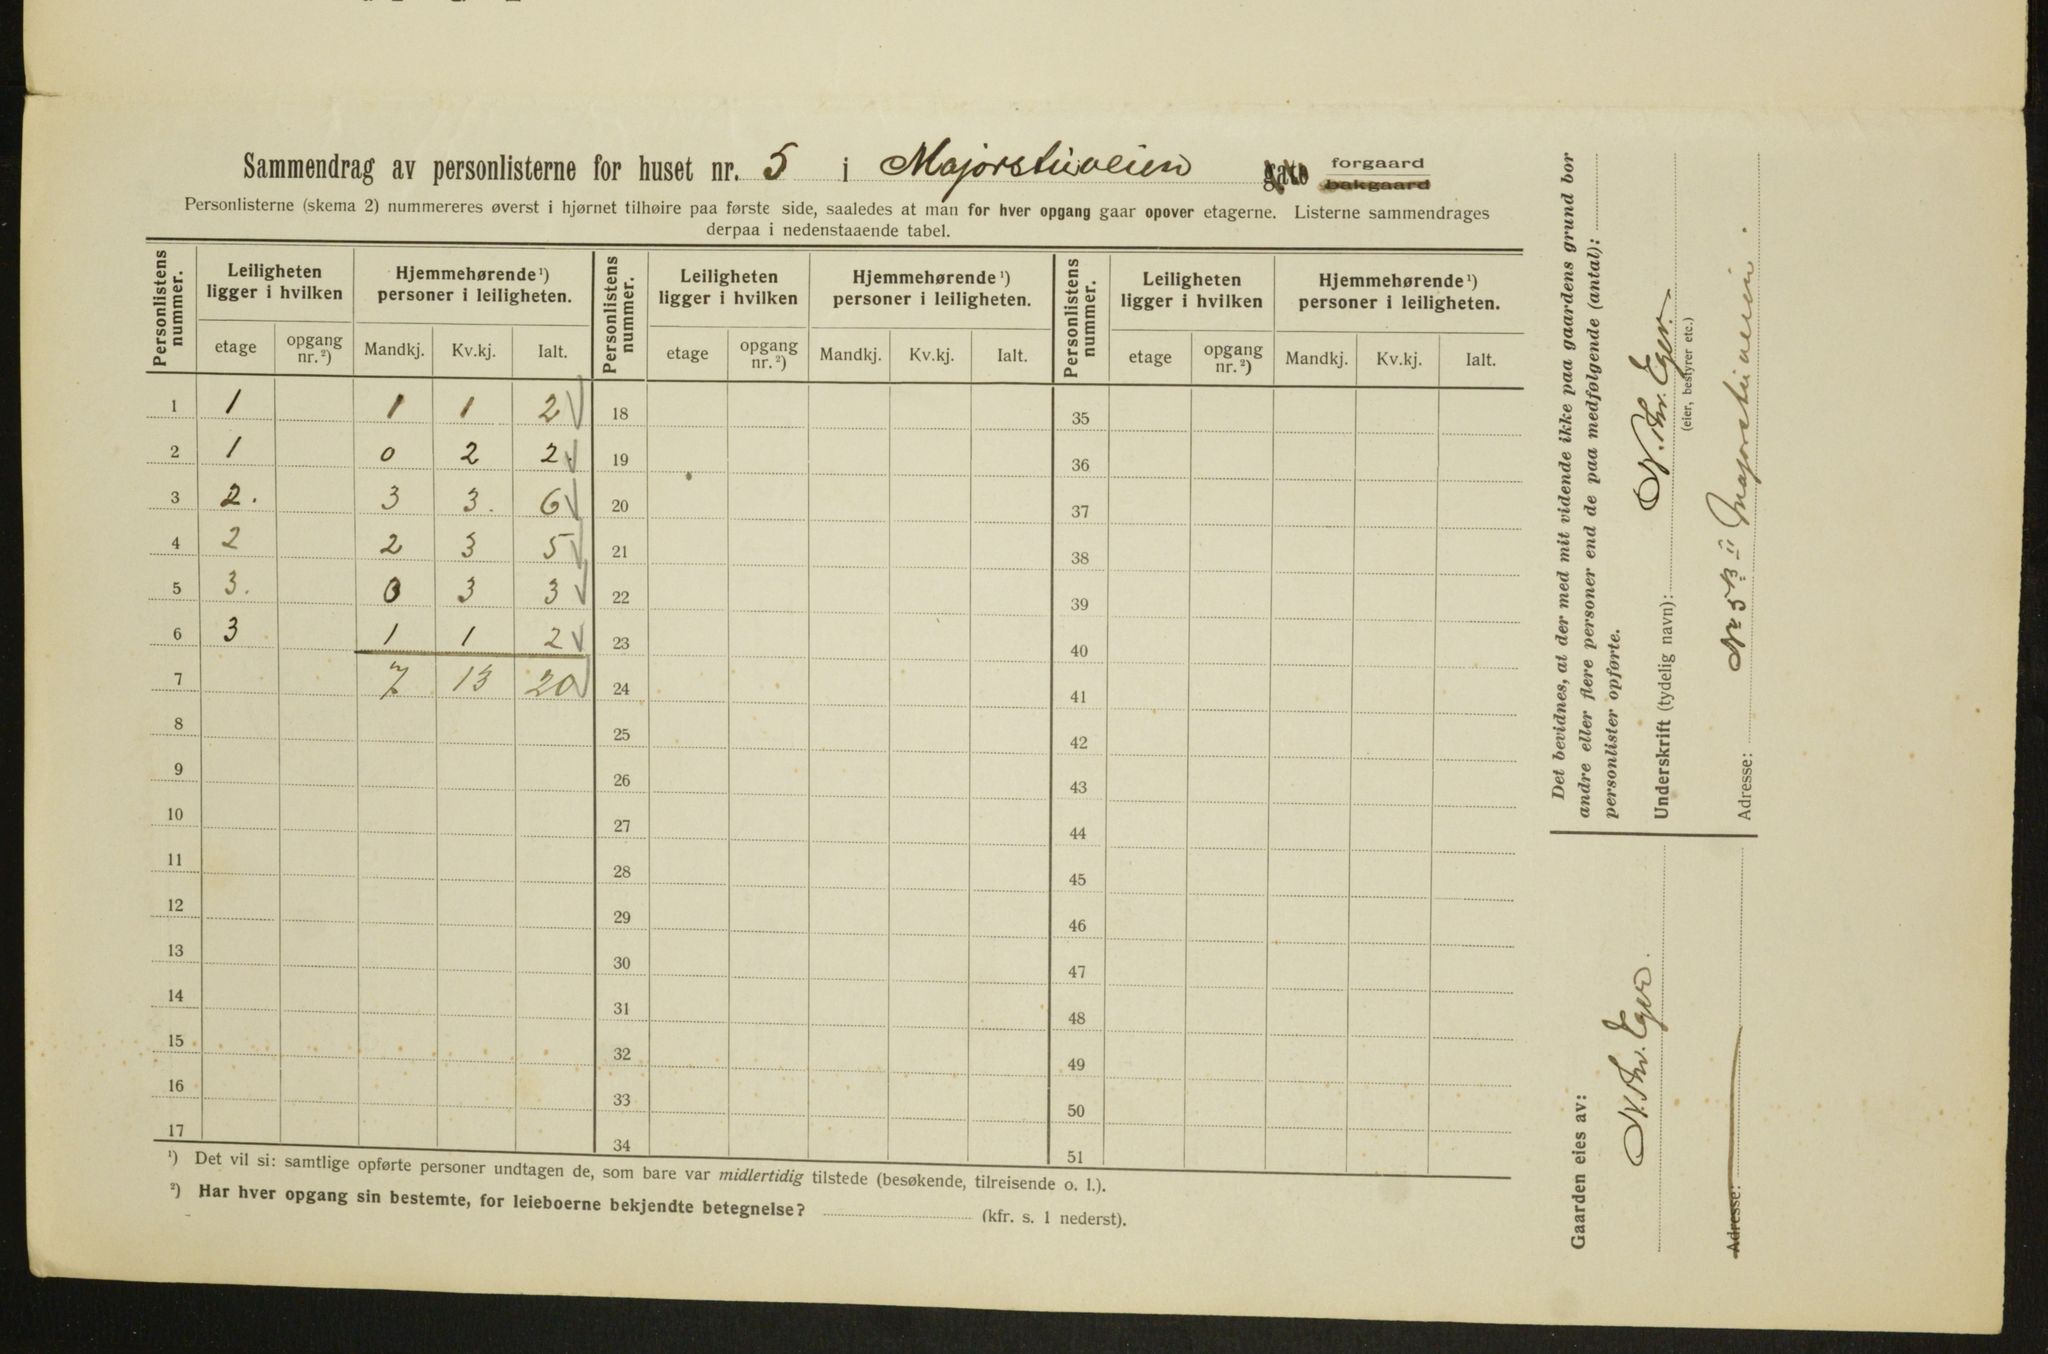 Sammendrag av personlisterne for huset nr. 5 i Majorstuveien gate forgaard bakgaard
Personlisterne (skema 2) nummereres øverst i hjørnet tilhøire paa første side, saaledes at man for hver opgang gaar opover etagerne. Listerne sammendrages
derpaa i nedenstaaende tabel.
Personlistens nummer. Leiligheten ligger i hvilken Hjemmehørende ¹) personer i leiligheten. Personlistens nummer. Leiligheten ligger i hvilken Hjemmehørende ¹) personer i leiligheten. Personlistens nummer. Leiligheten ligger i hvilken Hjemmehørende ¹) personer i leiligheten.
etage opgang nr. ²) Mandkj. Kv.kj. Ialt. etage opgang nr. ²) Mandkj. Kv.kj. Ialt. etage opgang nr. ²) Mandkj. Kv.kj. Ialt.
1 1 1 1 2 18 35
2 1 0 2 2. 19 36
3 2. 3 3. 6 20 37
4 2 2 3 5 21 38
5 3. 0 3 3 22 39
6 3 1 1 2 23 40
7 7 13 20 24 41
8 25 42
9 26 43
10 27 44
11 28 45
12 29 46
13 30 47
14 31 48
15 32 49
16 33 50
17 34 51
¹) Det vil si: samtlige opførte personer undtagen de, som bare var midlertidig tilstede (besøkende, tilreisende o. l.).
²) Har hver opgang sin bestemte, for leieboerne bekjendte betegnelse? (kfr. s. 1 nederst).
Det bevidnes, at der med mit vidende ikke paa gaardens grund bor
andre eller flere personer end de paa medfølgende (antal):
personlister opførte.
Underskrift (tydelig navn): N. Chr. Eger.
(eier, bestyrer etc.)
Adresse: No 5 B II Majorstuveien.
Gaarden eies av:
N. Chr. Eger.
Adresse: